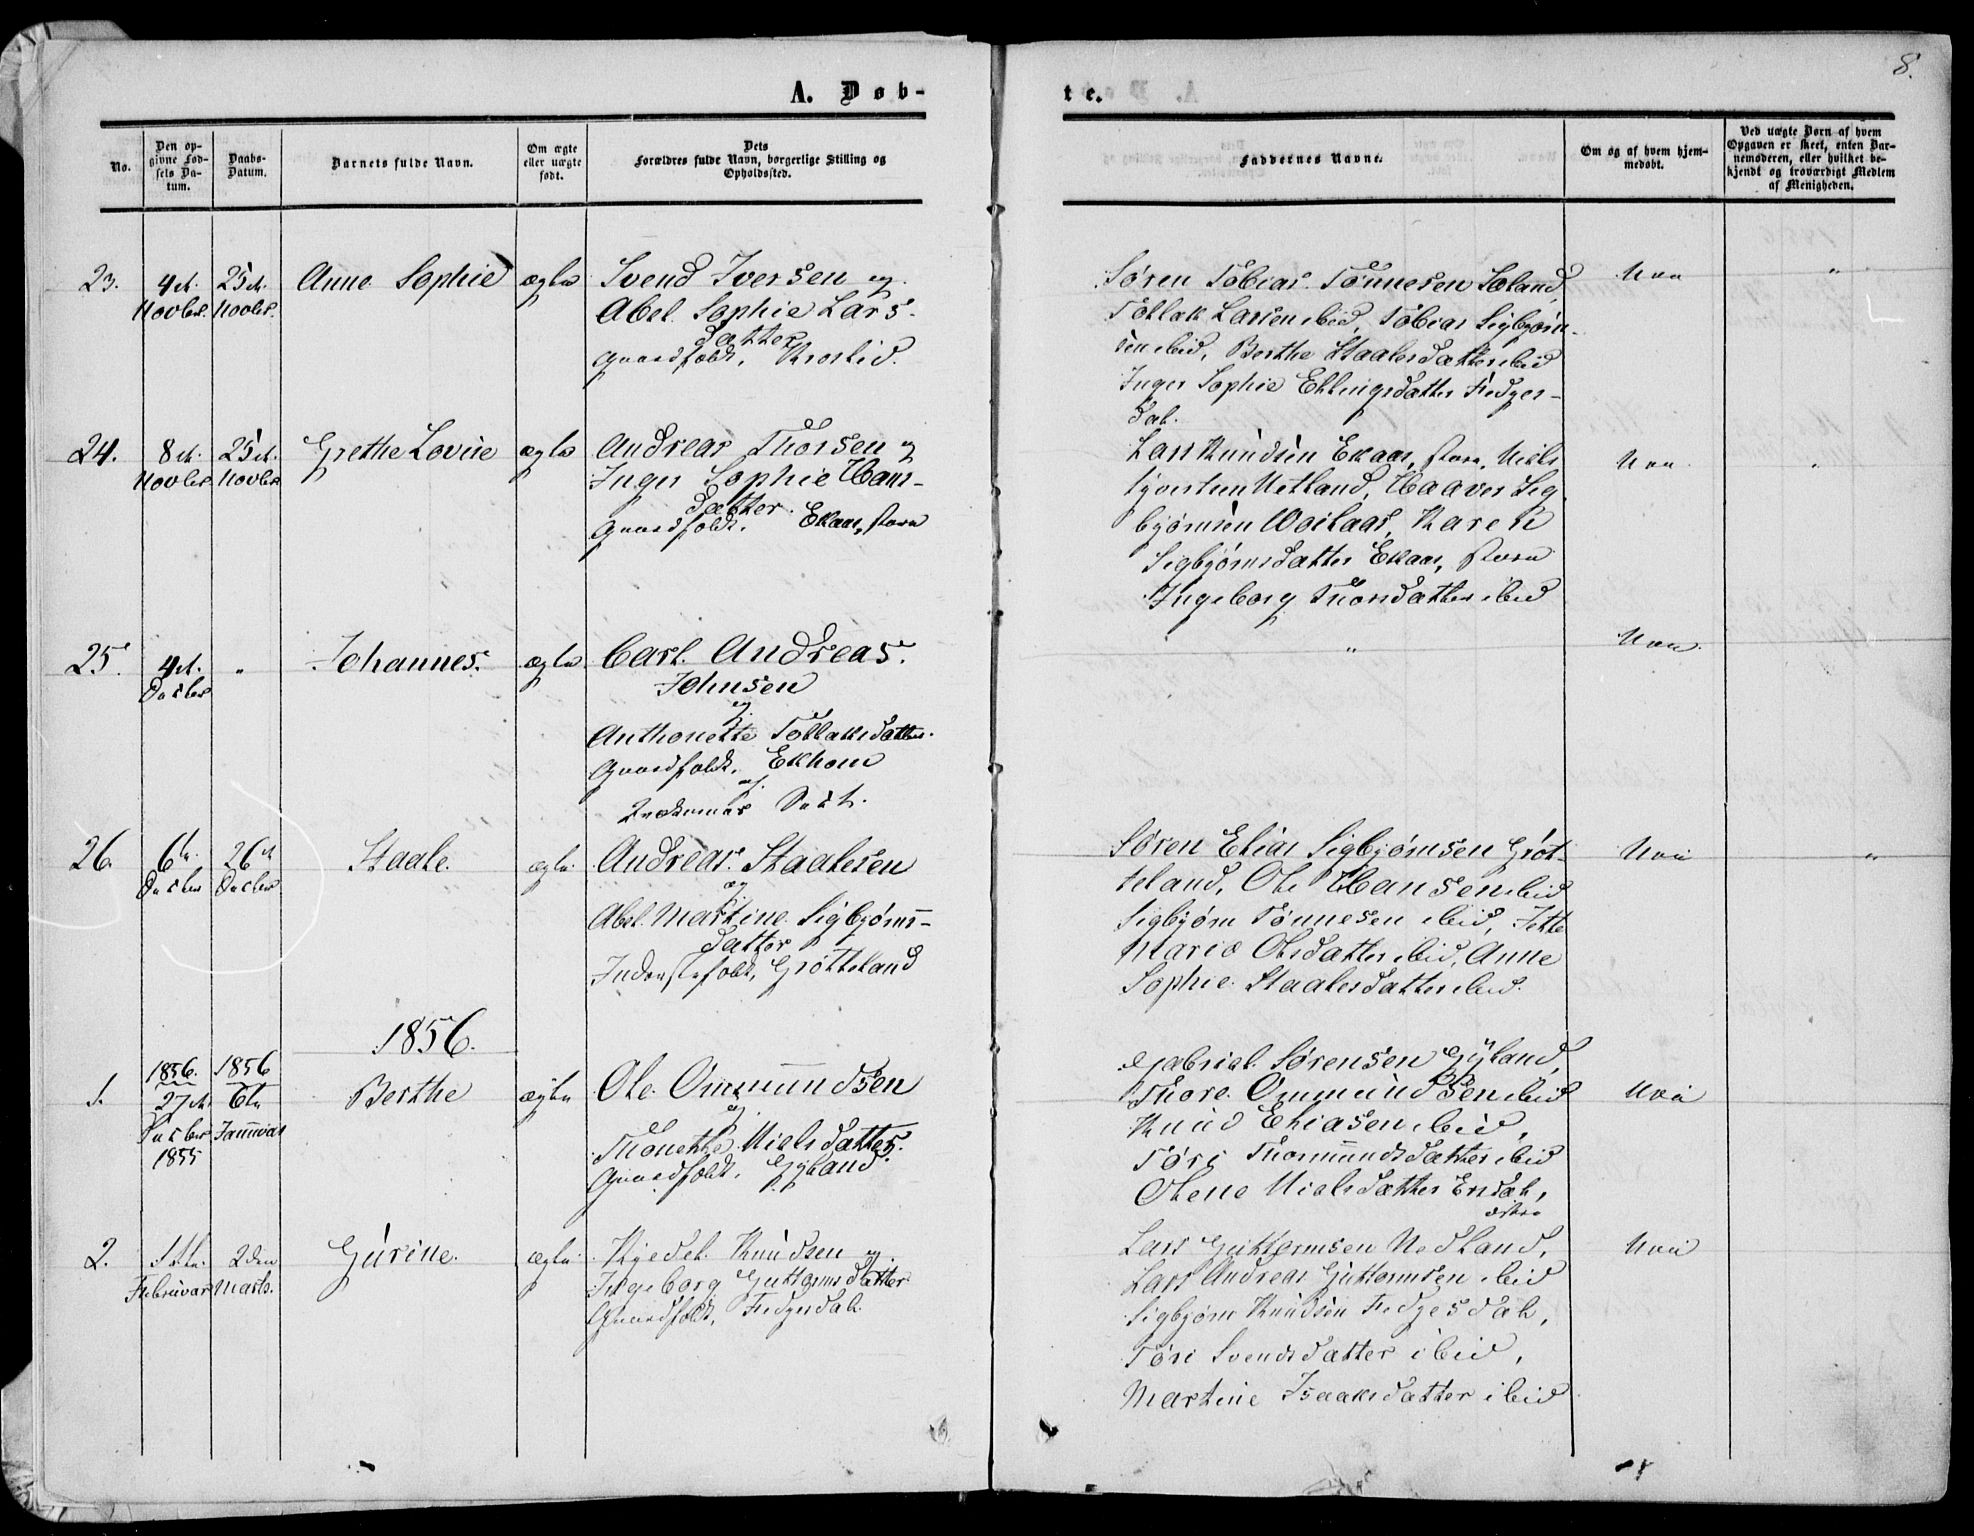 8.
A. Døb-
te.
No.
Den op-
givne Fød-
sels Da-
tum.
Daabs-
Datum.
Barnets fulde Navn.
Om ægte
eller uægte
født.
Dets
Forældres fulde Navn, borgerlige Stilling og
Opholdssted.
Faddernes Navne.
Om og af hvem hjem-
medøbt.
Ved uægte Børn af hvem
Opgaven er skeet, enten Bar-
nemoderen, eller hvilket be-
kjendt og troværdigt Medlem
af Menigheden.
23.
4de
Novber.
25de
Novber.
Anne Sophie
ægte
Svend Iversen og
Abel Sophie Lars-
datter
Gaardfolk,
Søren Tobias Tønnesen Søland,
Tollak Larsen ibid, Tobias Sigbjørn-
sen ibid, Berthe Staalesdatter ibid
Inger Sophie Ellingsdatter Fedger-
dal.
Nei
"
24.
8de
Novber
25de
Novber
Grethe Lovise
ægte
Andreas Thorsen og
Inger Sophie Hans-
datter.
Gaardfolk, Ekaas, store
Lars Knudsen Ekaas, store, Niels
Netland, Haaver Sig
bjørnsen Karen
Sigbjørnsdatter Ekaas, store
Ingeborg Thorsdatter ibid
Nei
"
25.
4de
Decber
"
Johannes.
ægte
Carl Andreas
Johnsen
og
Anthonette Tollaksdatter.
Gaardfolk,
"
Nei.
26.
6te
Decber
26de
Decber
Staale.
ægte
Andreas Staalesen
og
Abel Martine Sigbjørns-
datter
Inderstefolk, Grøtteland
Søren Elias Sigbjørnsen Grøt-
teland, Ole Hansen ibid
Sigbjørn Tønnesen ibid, Jette
Marie Olsdatter ibid, Anne
Sophie Staalesdatter ibid.
Nei
"
1856.
1.
1856.
27de
Decber
1855
1856
6te
Januar
Berthe
ægte
Ole Ommundsen
og
Thonette Nielsdatter.
Gaardfolk, Gyland.
Gabriel Sørensen Gyland,
Thore Ommundsen ibid
Knud Eliasen ibid,
Tøri Thormundsdatter ibid
Olene Nielsdatter Erdal,
østre
Nei
2.
1ste
Februar
2den
Marts.
Gurine.
ægte
Kjedel Knudsen og
Ingeborg Guttormsdatter
Gaardfolk, Fedgerdal.
Lars Guttormsen Nedland,
Lars Andreas Guttormsen ibid
Sigbjørn Knudsen Fedgesdal,
Tøri Svendsdatter ibid,
Martine Isaaksdatter ibid
Nei